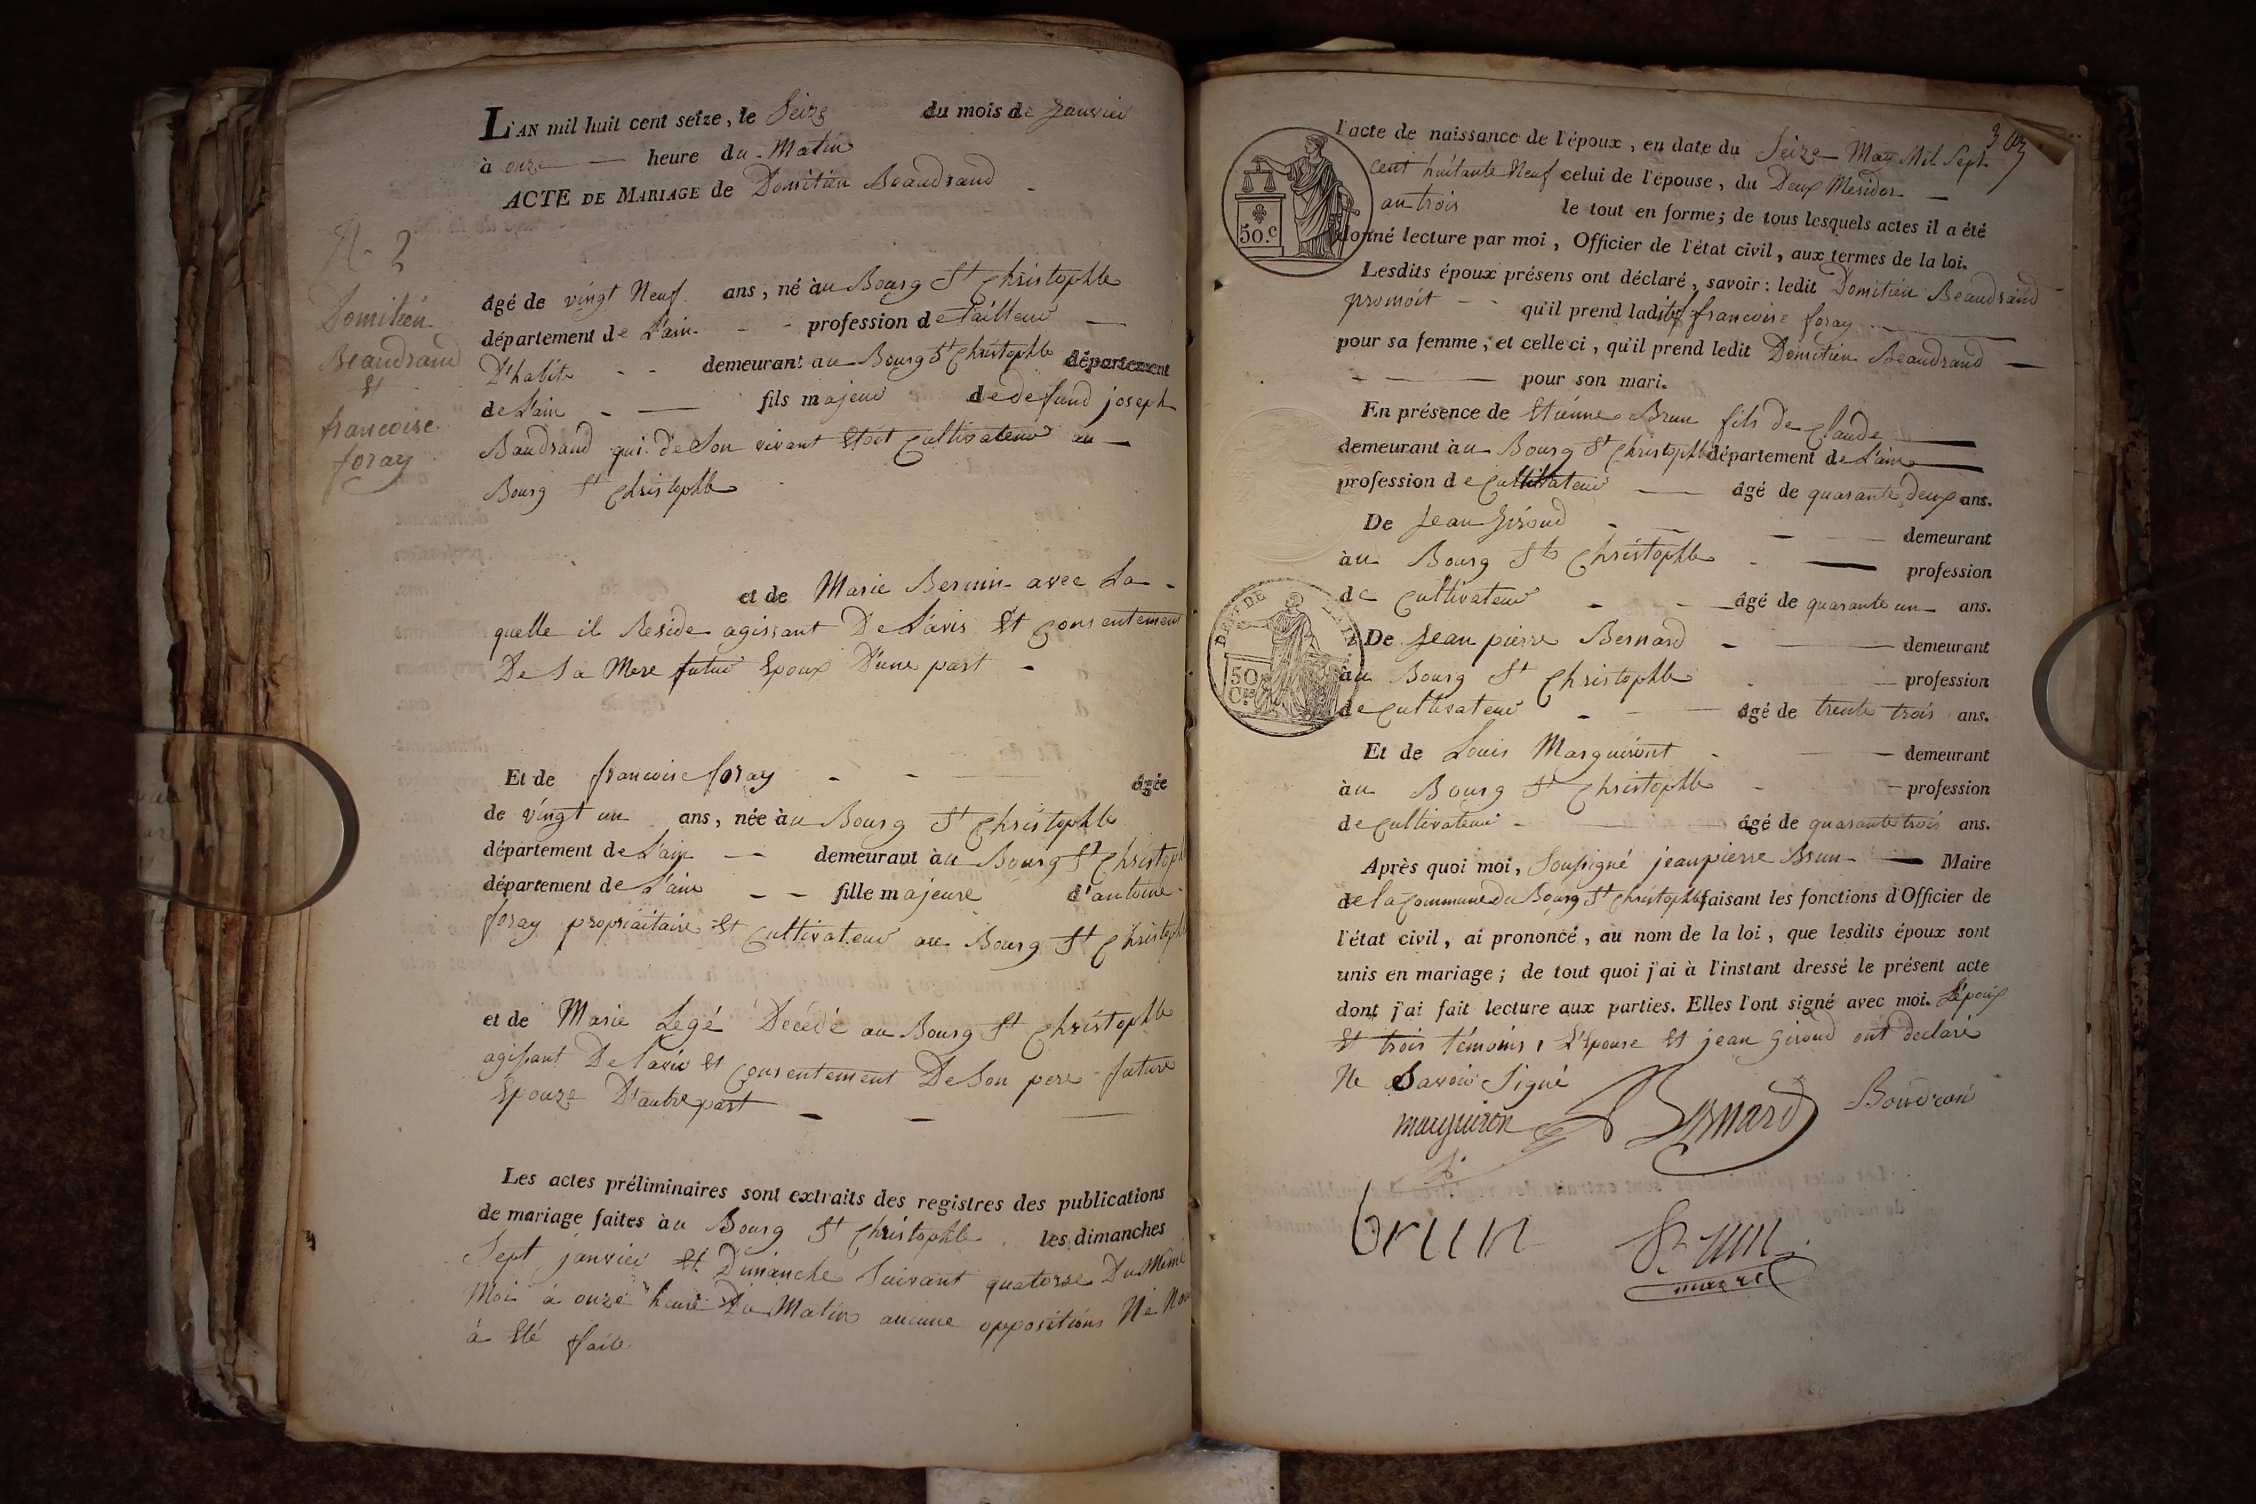 L'AN mil huit cent seize, le Seize du mois de Janvier
à onze heure du Matin
ACTE DE MARIAGE de Domitien Beaudrand
N. 2
Domitien
Beaudrand
et
francoise
foray
âgé de vingt Neuf ans, né àu Bourg St Christophle
département de L'ain profession de tailleur
D'habits demeurant au Bourg St Christophle département
de L'ain fils majeur de defund joseph
Baudrand qui de Son vivant Etoit Cultivateur au
Bourg St Christophle
et de Marie Bernin avec La
quelle il Reside agissant De L'avis Et Consentement
De Sa Mere futur Epoux D'une part
Et de francoise foray âgée
de vingt un ans, née àu Bourg St Christophle
département de L'ain demeurant àu Bourg St Christoph
département de L'ain fille majeure d'antoine
foray propriaitaire Et Cultivateur au Bourg St Christoph
et de Marie Legé Décédé au Bourg St Christophle
agissant De Lavis et Consentement De Son pere future
Epouze D'autre part
Les actes préliminaires sont extraits des registres des publications
de mariage faites àu Bourg St Christophle les dimanches
Sept janvier Et Dimanche Suivant quatorse Du Même
Moi à onze heure Du Matin aucune oppositions Ne Nou
à Eté faite
303
50.c
l'acte de naissance de l'époux, en date du Seize May Mil Sept
cent huitante Neuf celui de l'épouse, du Deux Mesidor
an trois le tout en forme; de tous lesquels actes il a été
donné lecture par moi, Officier de l'état civil, aux termes de la loi.
Lesdits époux présens ont déclaré, savoir: ledit Domitien Beaudrand
promoit qu'il prend ladite francoise foray
pour sa femme, et celle ci, qu'il prend ledit Domitien Beaudrand
pour son mari.
En présence de Etienne Brun fils de Claude
demeurant àu Bourg St Christophle département de L'ain
profession de Cultivateur âgé de quarante deux ans.
De Jean Giroud demeurant
àu Bourg St Christophle profession
de Cultivateur âgé de quarante un ans.
De Jean pierre Bernard demeurant
àu Bourg St Christophle profession
de Cultivateur âgé de trente trois ans.
DEPT DE L'AIN
50
Ces
Et de Louis Marguiront demeurant
àu Bourg St Christophle profession
de Cultivateur âgé de quarante trois ans.
Après quoi moi, Soussigné jean pierre Brun Maire
de la Commune du Bourg St Christophle faisant les fonctions d'Officier de
l'état civil, ai prononcé, au nom de la loi, que lesdits époux sont
unis en mariage; de tout quoi j'ai à l'instant dressé le présent acte
dont j'ai fait lecture aux parties. Elles l'ont signé avec moi. L'époux
Et trois témoins, L'Epouse Et jean Giroud ont declaré
Ne Savoir Signé
marguiron Bernard Boudran
brun Brun
maire